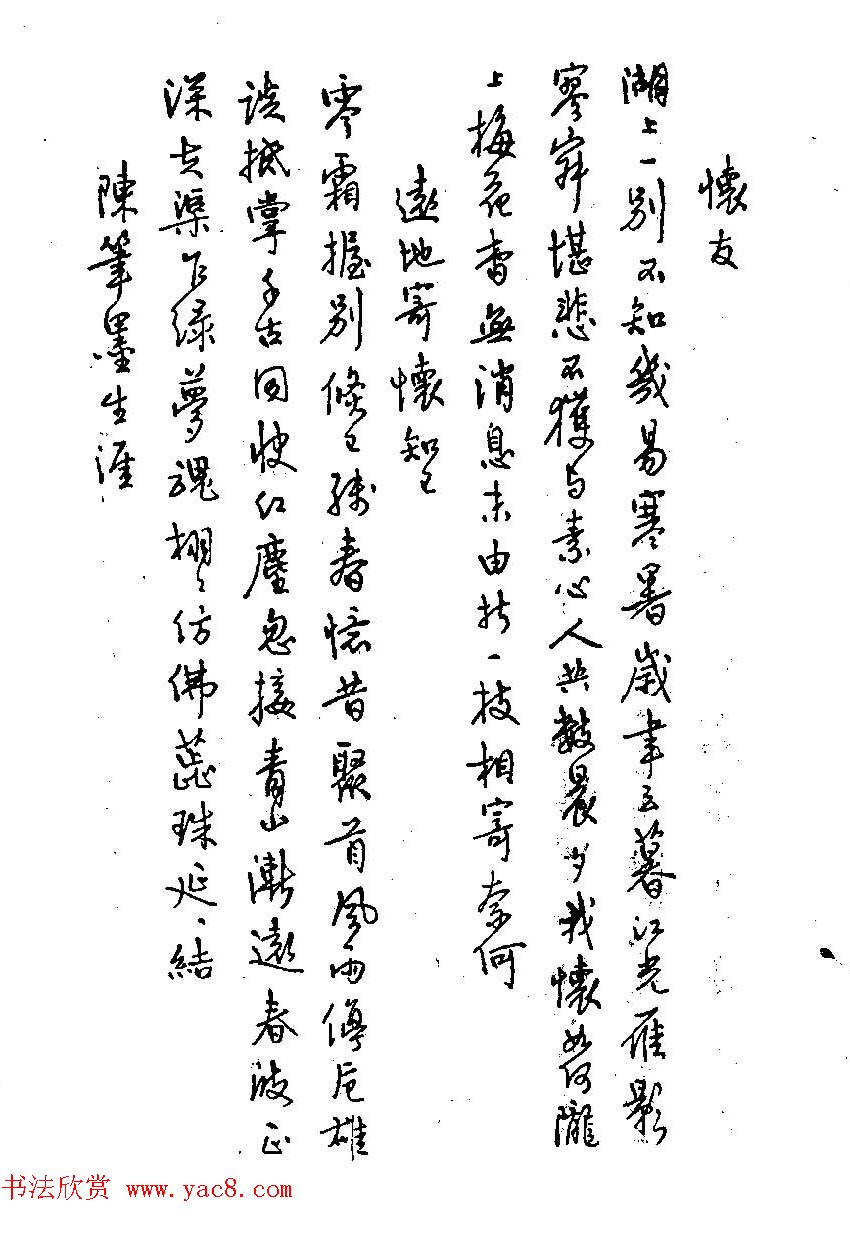 懷友
湖上一別不知幾易寒暑歲聿云暮江光雁影
寥寂堪悲不獲与素心人共數晨夕我懷如何隴
上梅花杳無消息未由折一枝相寄奈何
遠地寄懷知己
零霜握別倏已殘春憶昔聚首風雨停卮雄
談抵掌千古同快紅塵忽接青山漸遠春波正
深渠乍綠夢魂栩々仿佛蕊珠延、結
陳筆墨生涯
书法欣赏 www.yac8.com